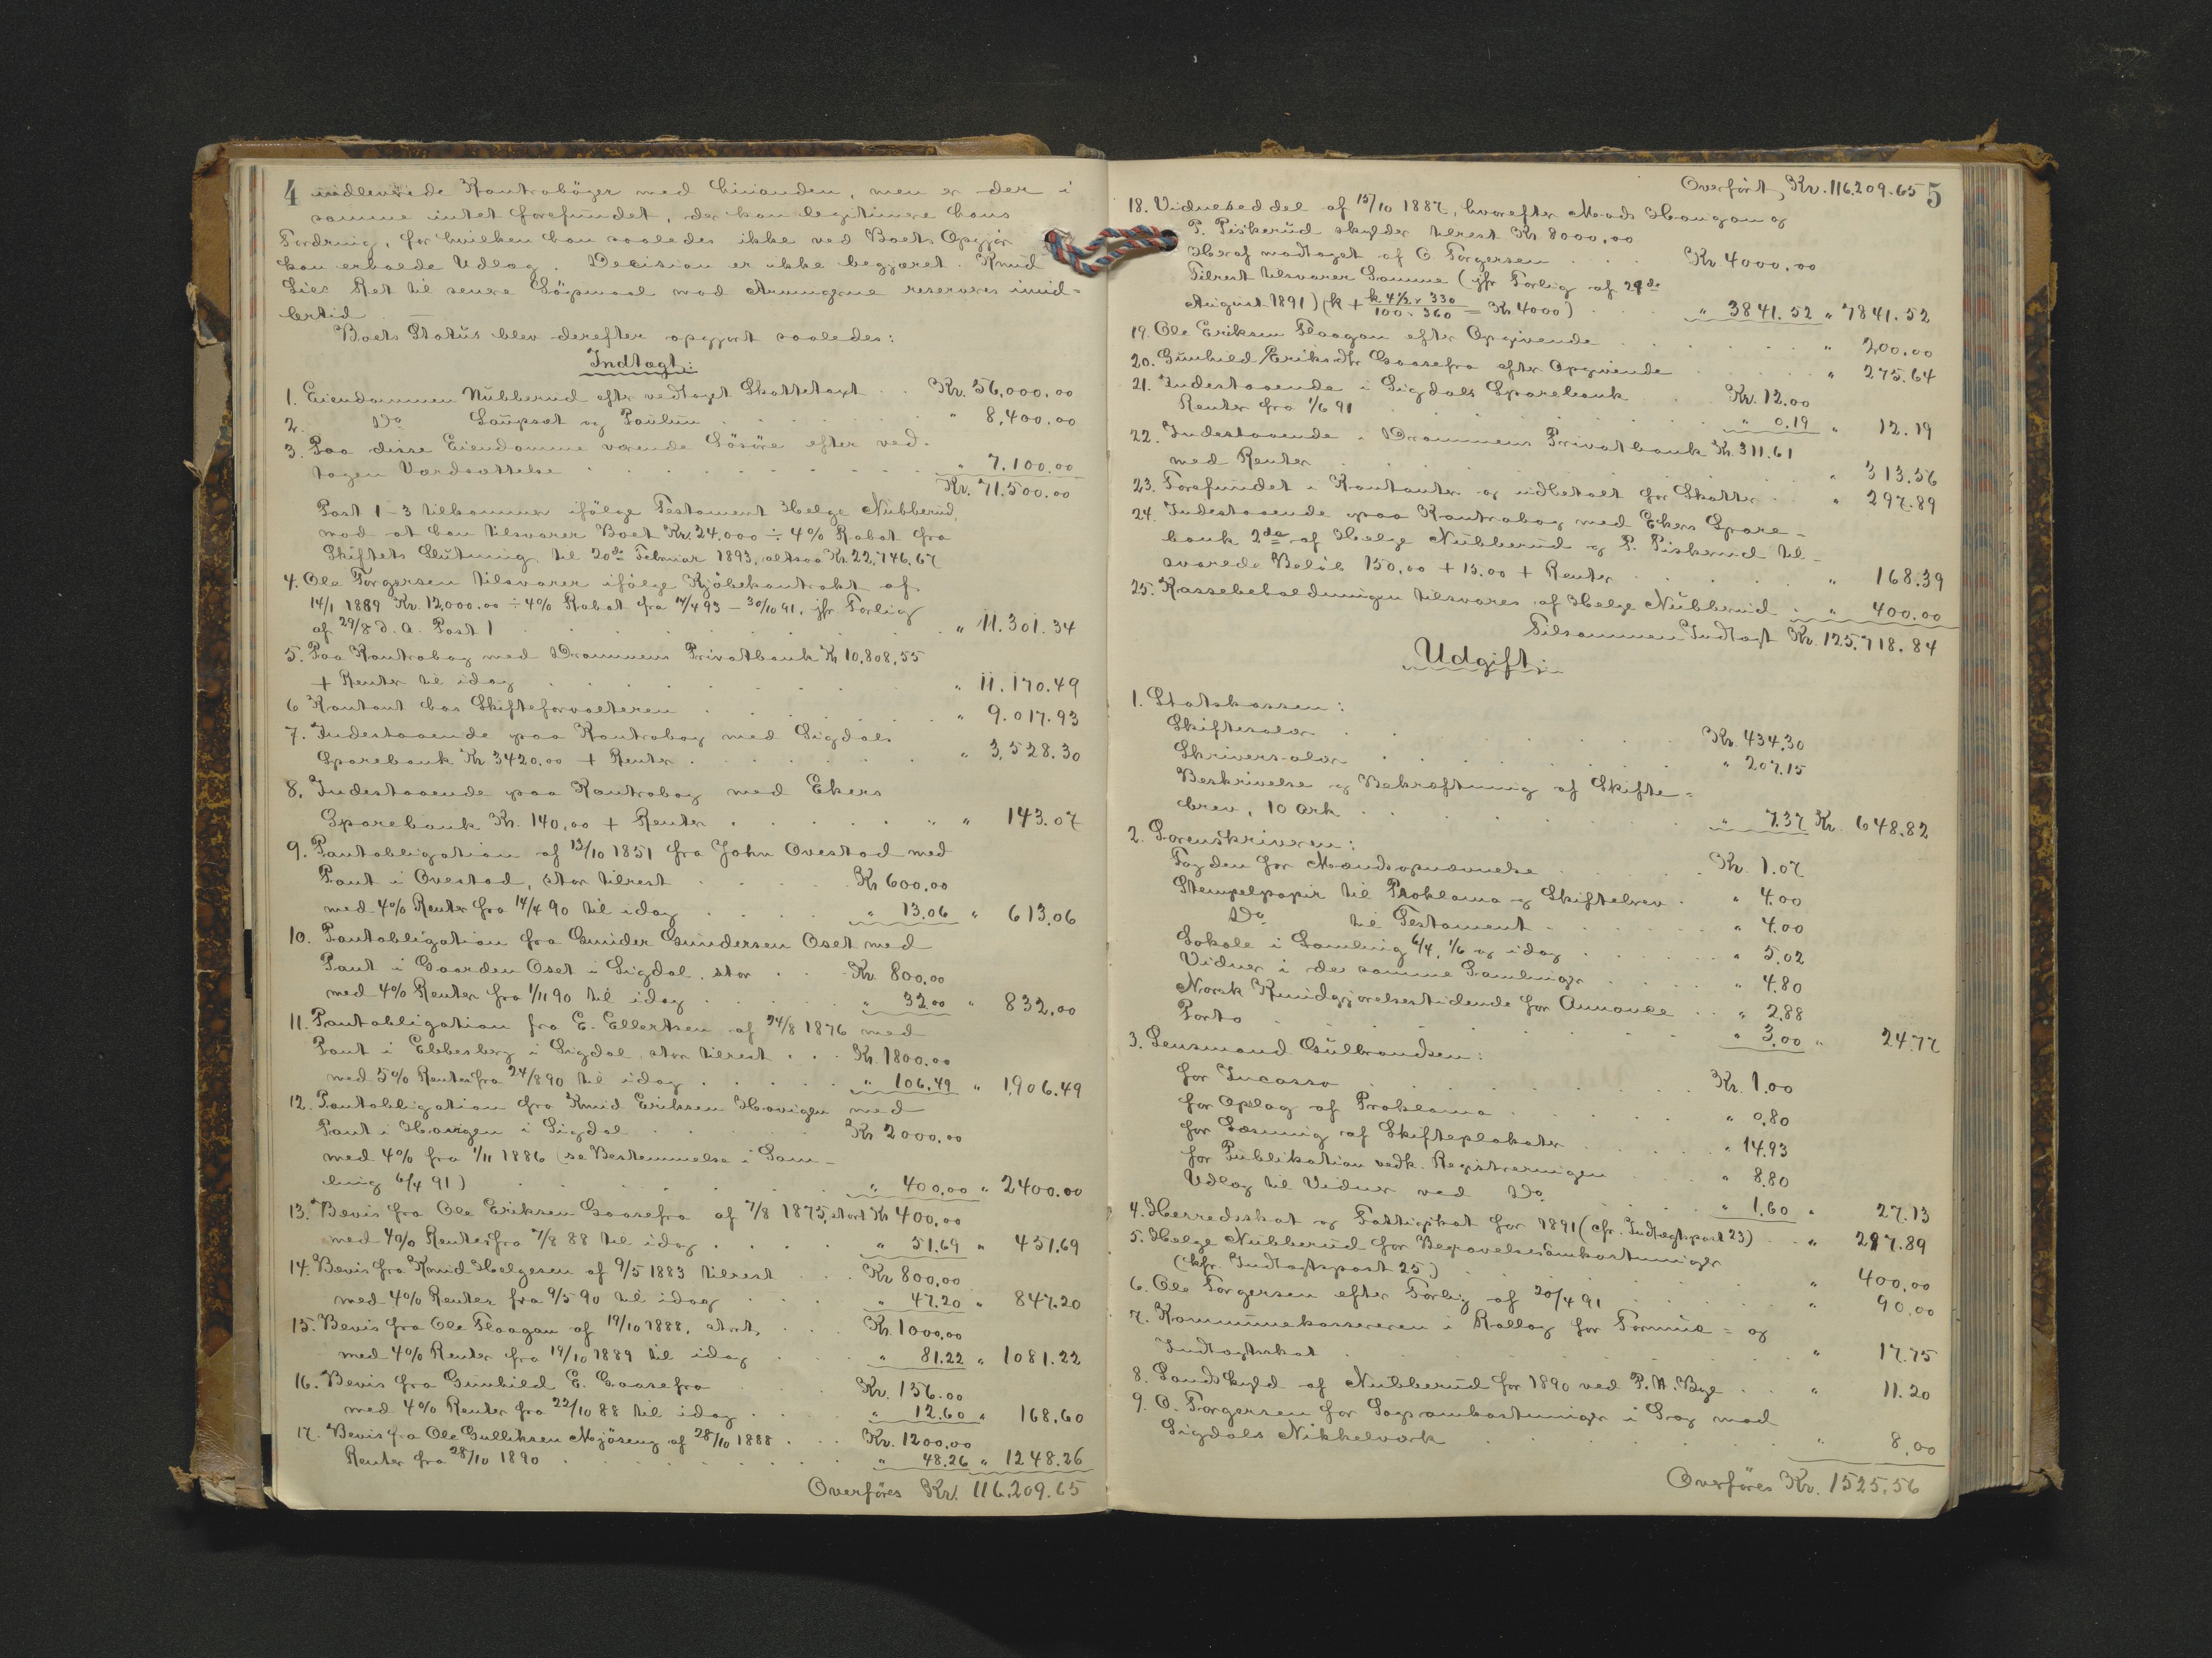 4 indleverede Kontrabøger med hinanden, men er der i
samme intet forefundet, der kan legitimere hans
Fordring, for hvilken han saaledes ikke ved Boets Opgjør
kan erholde Udlæg. Decision er ikke begjæret. Knud
Lies Ret til senere Søgsmaal mod Arvingerne reserveres imid-
lertid.
Boets Status blev derefter opgjort saaledes:
Indtægt:
1. Eiendommen Nubberud efter vedtaget Skattetaxt . . Kr. 56,000.00
2. Do Laupsæt og Paulün . . . . " 8,400.00
3. Paa disse Eiendomme værende Løsøre efter ved-
tagen Værdsættelse . . . . " 7.100.00
Kr. 71.500.00
Post 1-3 tilkommer ifølge Testament Helge Nubberud,
mod at han tilsvarer Boet Kr. 24.000 ÷ 4% Rabat fra
Skiftets Slutning til 20de Februar 1893, altsaa Kr. 22,746,67
4. Ole Torgersen tilsvarer ifølge Kjøbekontrakt af
14/1 1889 Kr. 12,000.00 ÷ 4% Rabat fra 14/4 93 – 30/10 91, jfr. Forlig
af 29/8 d. A. Post 1 . . . . " 11.301.34
5. Paa Kontrabog med Drammens Privatbank Kr 10,808,55
+ Renter til idag . . . . " 11.170.49
6 Kontant hos Skifteforvalteren . . . . " 9.017.93
7. Indestaaende paa Kontrabog med Sigdals
Sparebank Kr. 3420.00 + Renter . . . . " 3,528.30
8. Indestaaende paa Kontrabog med Ekers
Sparebank Kr. 140,00 + Renter . . . . " " 143.07
9. Pantobligation af 13/10 1851 fra John Ovestad med
Pant i Ovestad, stor tilrest . . . Kr 600,00
med 4% Renter fra 14/4 90 til idag . . . " 13.06 " 613.06
10. Pantobligation fra Gunder Gundersen Oset med
Pant i Gaarden Oset i Sigdal, stor . . . Kr. 800,00
med 4% Renter fra 1/11 90 til idag . . . " 32.00 " 832.00
11. Pantobligation fra E. Ellertsen af 24/8 1876 med
Pant i Ebbesberg i Sigdal, stor tilrest . . . Kr. 1800.00
med 5% Renter fra 24/8 90 til idag . . . " 106.49 " 1,906.49
12. Pantobligation fra Knud Eriksen Hovigen med
Pant i Hovigen i Sigdal . . . Kr 2000.00
med 4% fra 1/11 1886 (se Bestemmelse i Sam-
ling 6/4 91) . . . " 400.00 " 2400.00
13. Bevis fra Ole Eriksen Gaasefra af 7/8 1875, stort Kr 400.00
med 4% Renter fra 7/8 88 til idag . . . " 51.69 " 451.69
14. Bevis fra Knud Helgesen af 9/5 1883 tilrest . . . Kr 800,00
med 4% Renter fra 9/5 90 til idag . . . " 47.20 " 847.20
15. Bevis fra Ole Flaagan af 19/10 1888, stort, . . . Kr. 1000.00
med 4% Renter fra 19/10 1889 til idag . . . " 81.22 " 1081.22
16. Bevis fra Gunhild E. Gaasefra Kr. 156.00
med 4% Renter fra 22/10 88 til idag . . . " 12.60 " 168.60
17. Bevis fra Ole Gulliksen Mjøseng af 28/10 1888 . . . Kr. 1200.00
Renter fra 28/10 1890 . . . " 48.26 " 1248.26
Overføres Kr. 116.209.65
Overført, Kr. 116.209.65 5
18. Vidneseddel af 15/10 1887, hvorefter Mads Haugan og
P. Piskerud skylder tilrest Kr 8000,00
Heraf modtaget af O Torgersen . . . Kr 4000,00
Tilrest tilsvarer Samme (jfr Forlig af 29de
August 1891) (k + k. 4½ x 330 / 100 · 360 = Kr 4000) . . . " 3841.52 " 7841.52
19. Ole Eriksen Flaagan efter Opgivende . . . " 200.00
20. Gunhild Eriksdtr Gaasefra efter Opgivende . . . " 275.64
21. Indestaaende i Sigdals Sparebank . . . Kr. 12.00
Renter fra 1/6 91 . . . " 0.19 " 12.19
22. Indestaaende i Drammens Privatbank Kr. 311.61
med Renter . . . " 313.56
23. Forefundet i Kontanter og indbetalt for Skatter . . . " 297.89
24. Indestaaende paa Kontrabog med Ekers Spare-
bank 2de af Helge Nubberud og P. Piskerud til-
svarede Beløb 150.00 + 15.00 + Renter . . . " 168.39
25. Kassebeholdningen tilsvares af Helge Nubberud . . " 400.00
Tilsammen Indtægt Kr. 125.718.84
Udgift:
1. Statskassen:
Skiftesalær . . . Kr. 434.30
Skriversalær . . . " 207.15
Beskrivelse og Bekræftning af Skifte-
brev, 10 Ark . . . " 7.37 Kr. 648.82
2. Sorenskriveren:
Fogden for Mændsopnævnelse . . . Kr. 1.07
Stempelpapir til Proklama og Skiftebrev . " 4.00
Do til Testament . . . " 4.00
Lokale i Samling 6/4, 1/6 og idag . . . " 5.02
Vidner i de samme Samlinger . . . " 4.80
Norsk Kundgjørelsestidende for Annonce . . " 2.88
Porto . . . " 3.00 " 24.77
3. Lensmand Gulbrandsen:
for Incasso . . . Kr. 1.00
for Oplag af Proklama . . . " 0.80
for Læsning af Skifteplakater . . . " 14.93
for Publikation vedk. Registreringen . . . " 8.80
Udlæg til Vidner ved Do . . . " 1.60 " 27.13
4. Herredsskat og Fattigskat for 1891 (cfr. Indtægtspost 23) . . " 297.89
5. Helge Nubberud for Begravelsesomkostninger
(kfr. Indtægtspost 25) . . . " 400.00
6. Ole Torgersen efter Forlig af 20/4 91 . . . " 90.00
7. Kommunekassereren i Rollag for Formue- og
Indtægtsskat . . . " 17.75
8. Landskyld af Nubberud for 1890 ved P. A. Bye . . " 11.20
9. O. Torgersen for Sagsomkostninger i Sag mod
Sigdals Nikkelværk . . . " 8,00
Overføres Kr. 1525.56